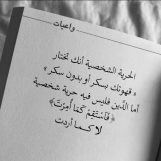 واعيات
الحرية الشخصية أنك تختار
« قهوتك بسكر أو بدون سكر »
أما الدّين فليس فيه حرية شخصية
﴿ فَاسْتَقِمْ كَمَا أُمِرْتَ ﴾
لا كـمـا أردت